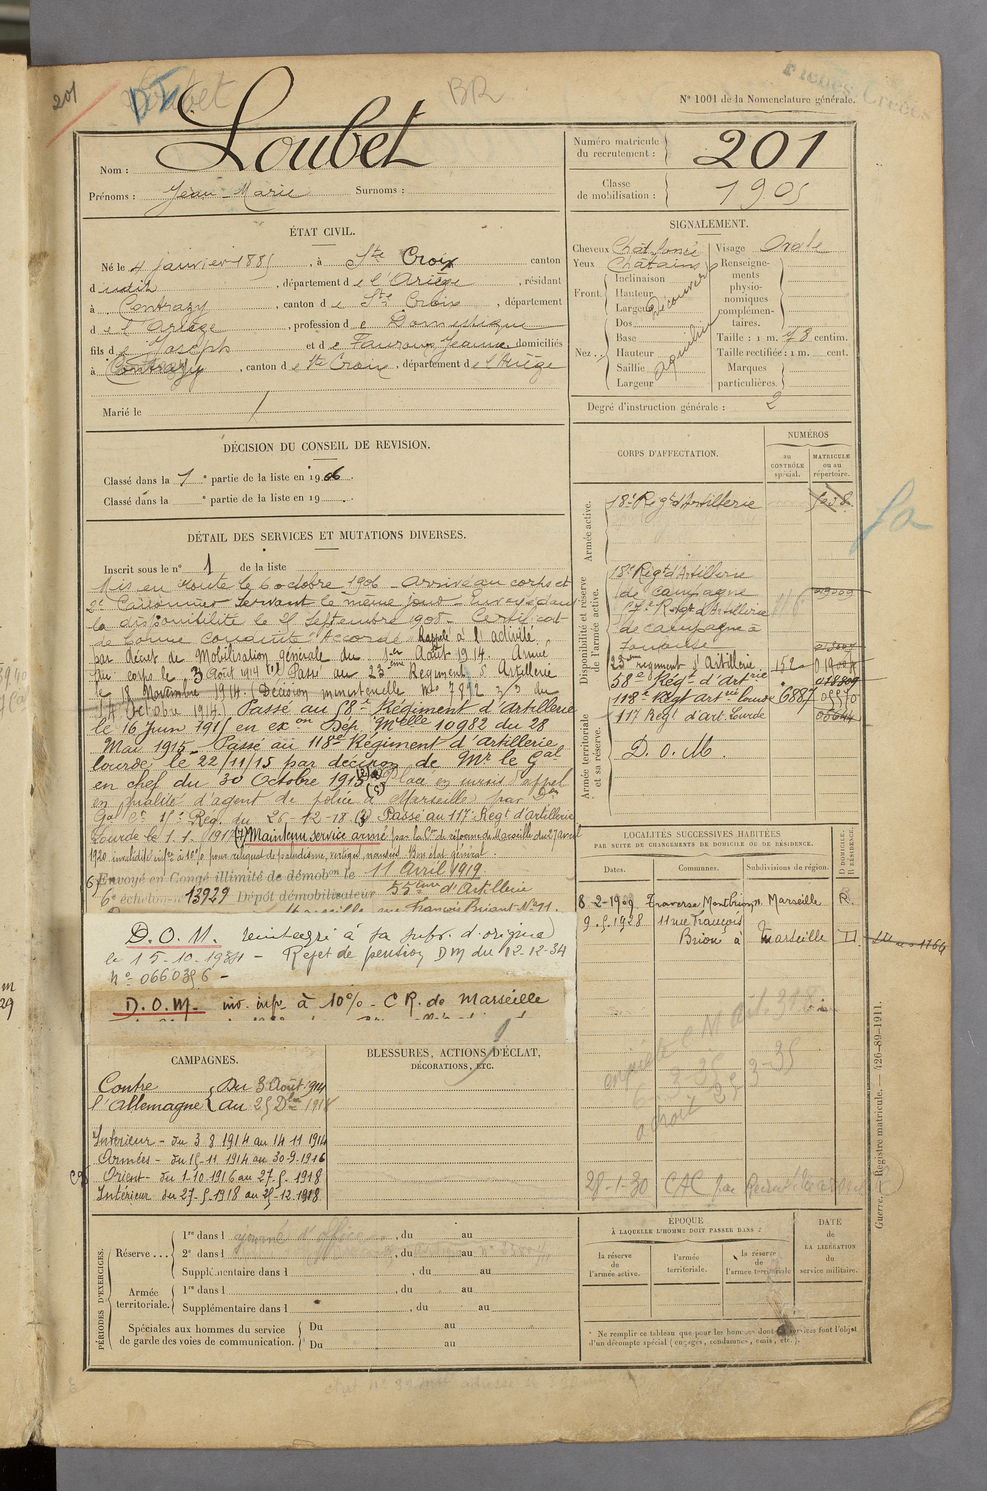 201
Loubet
BR
Fiches Créées
N° 1001 de la Nomenclature générale.
Nom : Loubet
Prénoms : Jean-Marie Surnoms :
Numéro matricule du recrutement : 201
Classe de mobilisation : 1905
ÉTAT CIVIL.
Né le 4 janvier 1885, à Ste Croix canton
dudit, département de l'Ariège, résidant
à Contrazy, canton de Ste Croix, département
de l'Ariège, profession de Domestique
fils de Joseph et de Faurous Jeanne domiciliés
à Contrazy, canton de Ste Croix, département de l'Ariège
Marié le /
SIGNALEMENT.
Cheveux Chât foncé
Yeux Châtains
Front. Inclinaison
Hauteur
Largeur
Découvert
Nez. Dos
Base
Hauteur
Saillie
Largeur
aquilin
Visage Ovale
Renseignements physionomiques complémentaires.
Taille : 1 m. 73 centim.
Taille rectifiée : 1 m. cent.
Marques particulières.
Degré d'instruction générale : 2
DÉCISION DU CONSEIL DE REVISION.
Classé dans la 1e partie de la liste en 1906.
Classé dans la e partie de la liste en 19 .
DÉTAIL DES SERVICES ET MUTATIONS DIVERSES.
Inscrit sous le n° 1 de la liste
Mis en route le 6 octobre 1906 - arrivé au corps et
2e Canonnier Servant le même jour - Envoyé dans
la disponibilité le Septembre 1908 - Certificat
de bonne conduite "Accordé" Rappelé à l'activité
par décret de Mobilisation générale du 1er Août 1914. Arrivé
au corps le 3 août 1914 Passé au 23ème Régiment d'Artillerie
le 18 Novembre 1914. (Décision ministérielle No 7892 3/3 du
14 Octobre 1914.) Passé au 58e Régiment d'Artillerie
le 16 Juin 1915 en exon Dép. Mlelle 10982 du 28
Mai 1915 - Passé au 118e Régiment d'Artillerie
lourde, le 22/11/15 par décision de Mr le Gal
en chef du 30 Octobre 1915 Placé en sursis d'appel
en qualité d'agent de police à Marseille par Don
Gal Ct 15e Rég. du 26-12-18 Passé au 117e Régt d'Artillerie
Lourde le 1.1.1919 Maintenu service armé par la Con de réforme de Marseille du 27 avril
1920 invalidité infre à 10% pour reliquat de paludisme, Bon état général.
Envoyé en Congé illimité de démobon le 11 Avril 1919
6e échelon n° 13929 Dépôt démobilisateur 55ème d'Artillerie
Marseille rue François Briant No 11.
D.O.M. réintégré à sa subd. d'origine
le 15-10-1931 - Rejet de pension DM du 12-12-34
n° 0660356 -
D.O.M. inv. infre à 10% - CR. de Marseille
CORPS D'AFFECTATION.
NUMÉROS
au CONTRÔLE spécial.
MATRICULE ou au répertoire.
Armée active.
18e Régt d'Artillerie
Disponibilité et réserve de l'armée active.
18e Régt d'Artillerie
de campagne
57e Régt d'Artillerie
de campagne à
Toulouse
23ème régiment d'Artillerie. 152
58e Régt d'Artrie
118e Régt artrie lourde 6887 05570
Armée territoriale et sa réserve.
117 Régt d'Art. Lourde
D. O. M.
LOCALITÉS SUCCESSIVES HABITÉES
PAR SUITE DE CHANGEMENTS DE DOMICILE OU DE RÉSIDENCE.
Dates. Communes. Subdivisions de région. D. DOMICILE. R. RÉSIDENCE.
8-2-1909 Traverse Montbrion, Marseille R.
9.5.1928 11 rue François
Brion à Marseille D
28-1-30 CAC
Guerre. — Registre matricule. — 426-89-1911.
CAMPAGNES.
Contre l'Allemagne Du 3 Août 1914
au 25 Dbre 1918
Intérieur - du 3 8 1914 au 14 11 1914
Armées - du 15 11 1914 au 30-9-1916
Orient - du 1-10-1916 au 27-5-1918
Intérieur du 27-5-1918 au 25-12-1918
BLESSURES, ACTIONS D'ÉCLAT, DÉCORATIONS, ETC.
PÉRIODES D'EXERCICES.
Réserve... 1re dans l , du au
2e dans l , du au
Supplémentaire dans l , du au
Armée territoriale. 1re dans l , du au
Supplémentaire dans l , du au
Spéciales aux hommes du service de garde des voies de communication. Du au
Du au
ÉPOQUE
À LAQUELLE L'HOMME DOIT PASSER DANS :
la réserve de l'armée active.
l'armée territoriale.
la réserve de l'armée territoriale
DATE de LA LIBÉRATION du service militaire.
Ne remplir ce tableau que pour les hommes dont les services font l'objet
d'un décompte spécial (engagés, condamnés, omis, etc.).